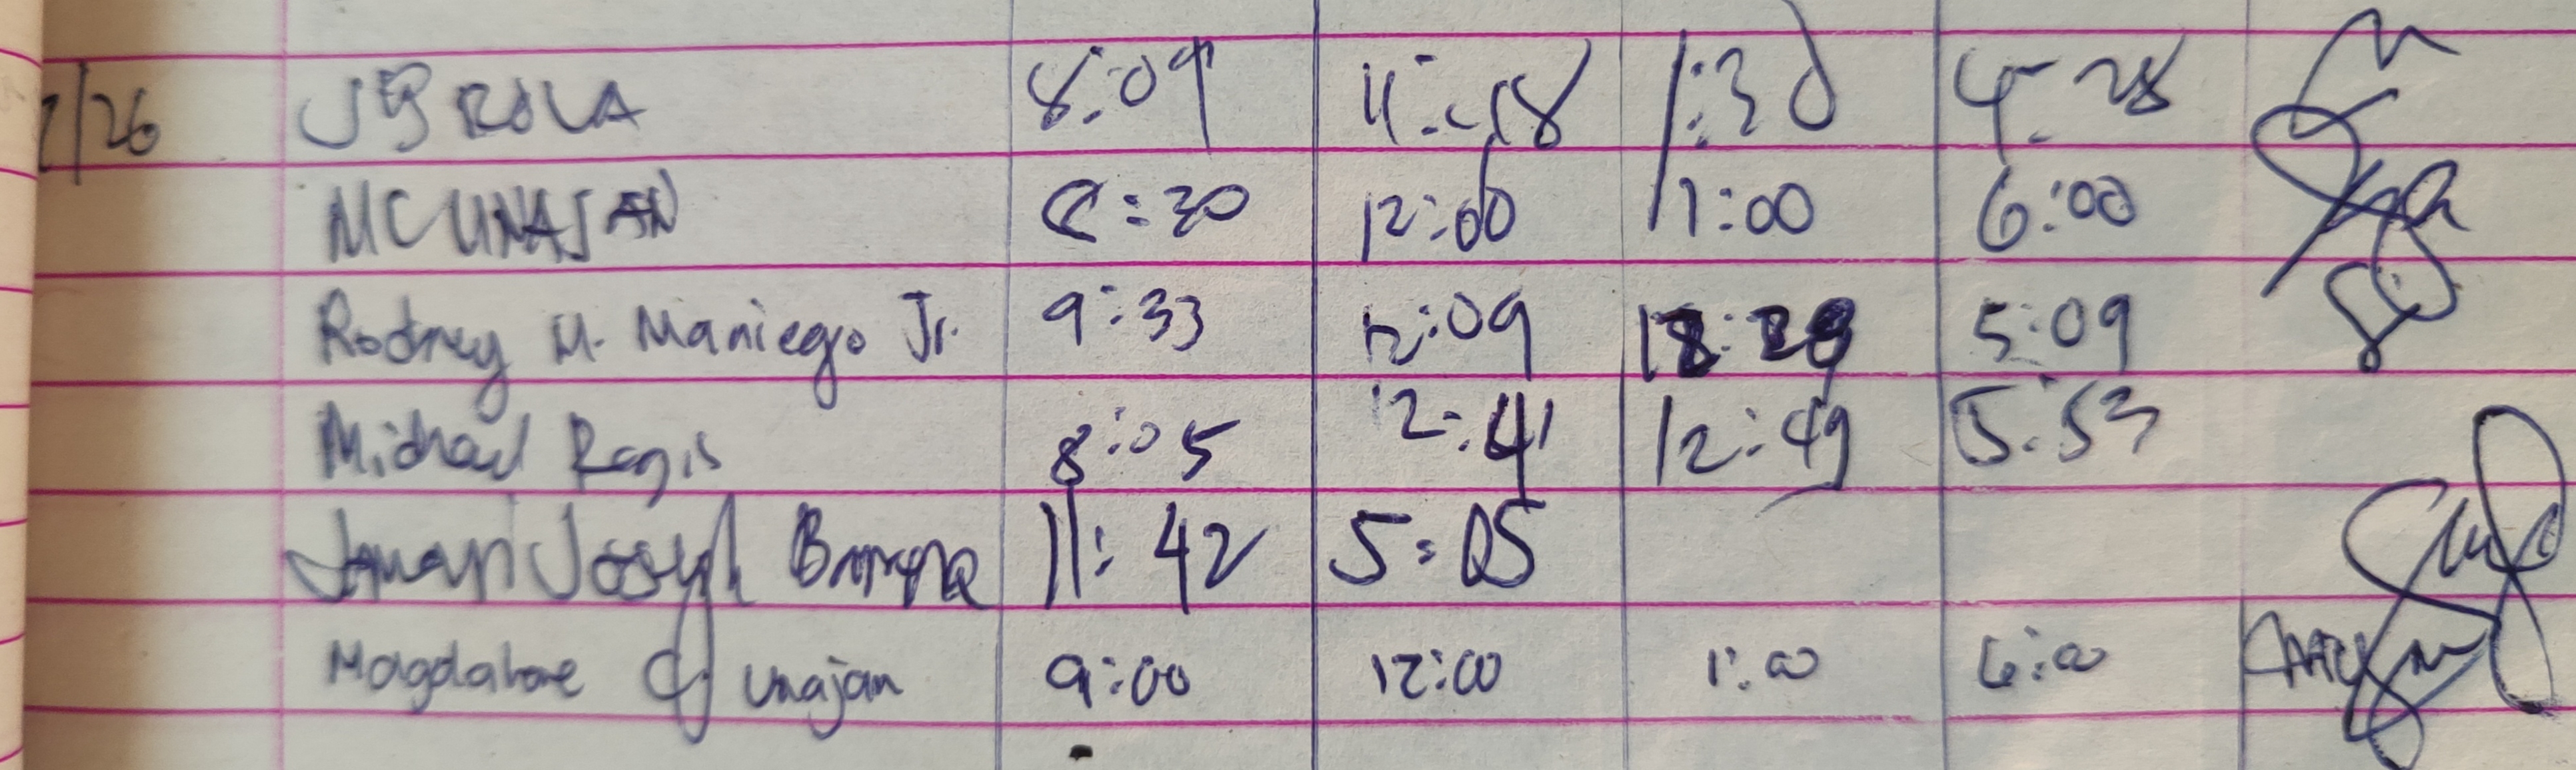 /26 JB ROLA 8:09 11:18 1:30 4:28
MC UNAJAN 8:30 12:00 1:00 6:00
Rodney M. Maniego Jr. 9:33 12:09 5:09
Michael Regis 8:05 12:41 12:49 5:53
Joseph 11:42 5:05
Magdalane CJ Unajan 9:00 12:00 1:00 6:00